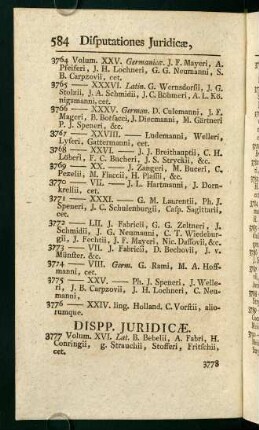 584 Disputationes Juridicæ,
3764 Volum. XXV. Germanicæ. J. F. Mayeri, A.
Pfeiferi, J. H. Lochneri, G. G. Neumanni, S.
B. Carpzovii, cet.
3765 — XXXVI. Latin. G. Wernsdorfii, J. G.
Stolzii, J. A. Schmidii, J. C. Böhmeri, A. L. Kö-
nigsmanni, cet.
3766 — XXXV. German. D. Culemanni, J. F.
Mageri, B. Botsacci, J. Dieemanni, M. Gürtneri
P. J. Speneri, &c.
3767 — XXVIII. — Ludemanni, Welleri,
Lyseri, Gattermanni, cet.
3768 — XXVI. — J. J. Breithauptii, C. H.
Löberi, F. C. Bucheri, J. S. Stryckii, &c.
3769 — XX. — J. Zangeri, M. Buceri, C.
Pezelii, M. Flaccii, H. Plassii, &c.
3770 — VII. — J. L. Hartmanni, J. Dorn-
kreilii, cet.
3771 — XXXI. — G. M. Laurentii, Ph. J.
Speneri, J. C. Schulenburgii, Casp. Sagittarii,
cet.
3772 — LII. J. Fabricii, G. G. Zeltneri, J.
Schmidii, J. G. Neumanni, C. T. Wiedebur-
gii, J. Fechtii, J. F. Mayeri, Nic. Dassovii, &c.
3773 — VII. J. Fabricii, D. Bechovii, J. v.
Münster. &c.
3774 — VIII. Germ. G. Rami, M. A. Hoff-
manni, cet.
3775 — XXV. — Ph. J. Speneri, J. Welle-
ri, J. B. Carpzovii, J. H. Lochneri, C. Neu-
manni,
3776 — XXIV. ling. Holland. C. Vorstii, alio-
rumque.
DISPP. JURIDICÆ.
3777 Volum. XVI. Lat. B. Bebelii, A. Fabri, H.
Conringii, g. Strauchii, Stofferi, Fritschii,
cet.
3778